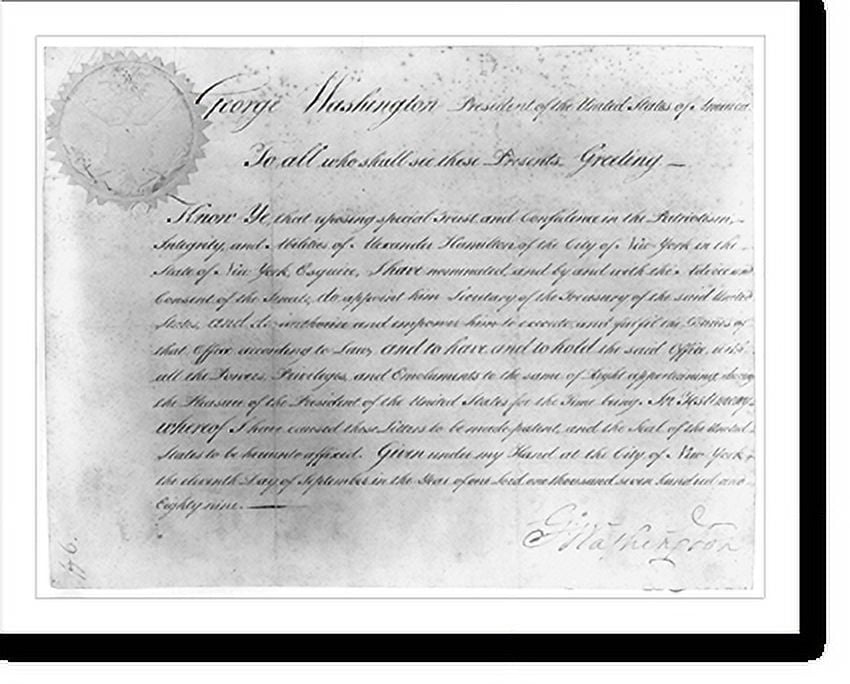 George Washington President of the United States of America
To all who shall see these Presents Greeting —
Know Ye, that reposing special Trust and Confidence in the Patriotism,
Integrity, and Abilities of Alexander Hamilton of the City of New York in the
State of New York, Esquire, I have nominated, and by and with the Advice and
Consent of the Senate, do appoint him Secretary of the Treasury of the said United
States, and do authorize and empower him to execute and fulfil the Duties of
that Office according to Law, and to have and to hold the said Office, with
all the Powers, Privileges, and Emoluments to the same of Right appertaining, during
the Pleasure of the President of the United States for the Time being. In Testimony
whereof I have caused these Letters to be made patent, and the Seal of the United
States to be hereunto affixed. Given under my Hand at the City of New York
the eleventh Day of September in the Year of our Lord one thousand seven hundred and
Eighty nine. —
G Washington